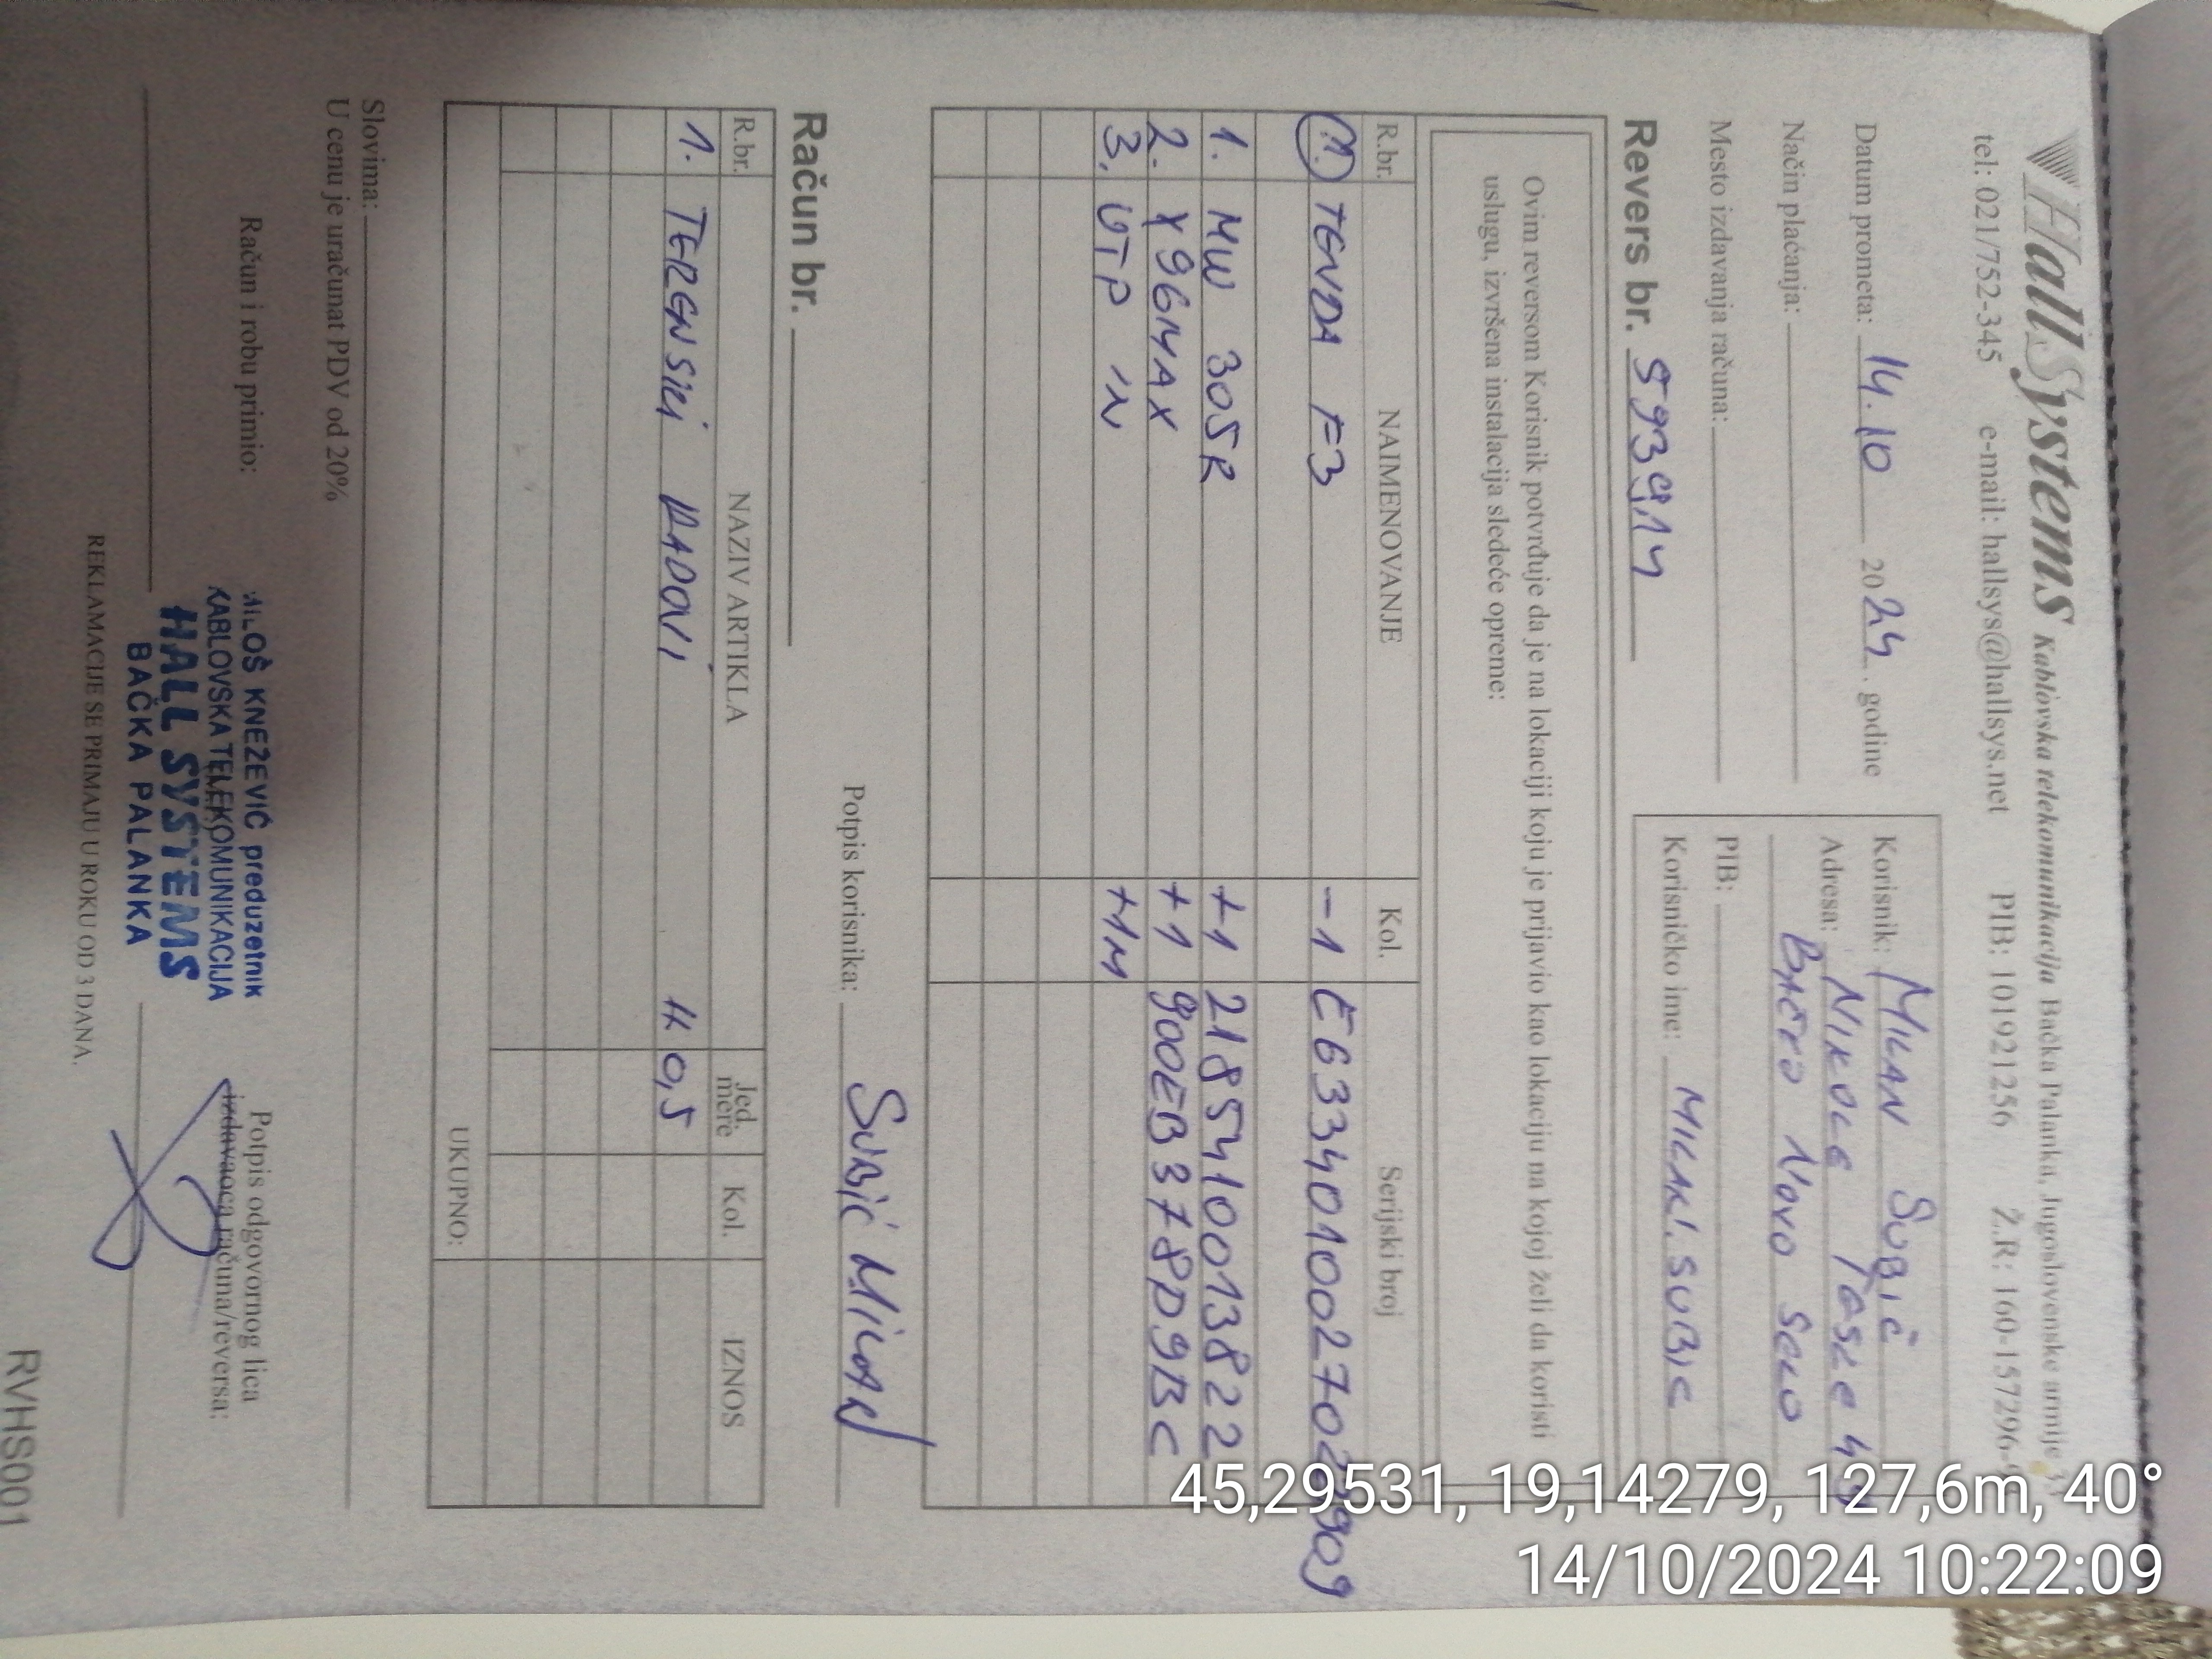 HallSystems Kablovska telekomunikacija Bačka Palanka, Jugoslovenske armije
tel: 021/752-345 e-mail: hallsys@hallsys.net PIB: 101921256 Ž.R: 160-157296-
Datum prometa: 14.10 2024. godine
Način plaćanja:
Mesto izdavanja računa:
Korisnik: MILAN SUBIĆ
Adresa: NIKOLE
BAČKO NOVO SELO
PIB:
Korisničko ime: MILAN.SUBIC
Revers br. 593914
Ovim reversom Korisnik potvrđuje da je na lokaciji koju je prijavio kao lokaciju na kojoj želi da koristi
uslugu, izvršena instalacija sledeće opreme:
R.br. NAIMENOVANJE Kol. Serijski broj
1. TENDA F3 -1
1. MW 305R +1 2185410013822
2. X96MAX +1 900EB378D9BC
3. UTP IN +1M
Potpis korisnika: SUBIĆ MILAN
Račun br.
R.br. NAZIV ARTIKLA Jed. mere Kol. IZNOS
1. TERENSKI RADOVI H 0,5
UKUPNO:
Slovima:
U cenu je uračunat PDV od 20%
Račun i robu primio:
ILOŠ KNEŽEVIĆ preduzetnik
KABLOVSKA TELEKOMUNIKACIJA
HALL SYSTEMS
BAČKA PALANKA
Potpis odgovornog lica
izdavaoca računa/reversa:
REKLAMACIJE SE PRIMAJU U ROKU OD 3 DANA.
RVHS001
45,29531, 19,14279, 127,6m, 40°
14/10/2024 10:22:09